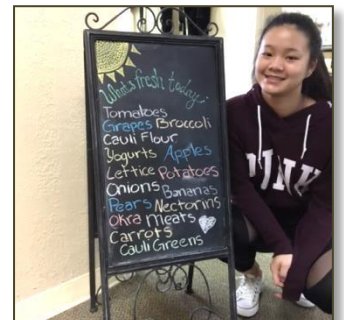 What's fresh today?
Tomatoes
Grapes Broccoli
Cauli Flour
Yogurts Apples
Lettice Potatoes
Onions Bananas
Pears Nectorins
Okra Meats
Carrots
Cauli Greens
PINK